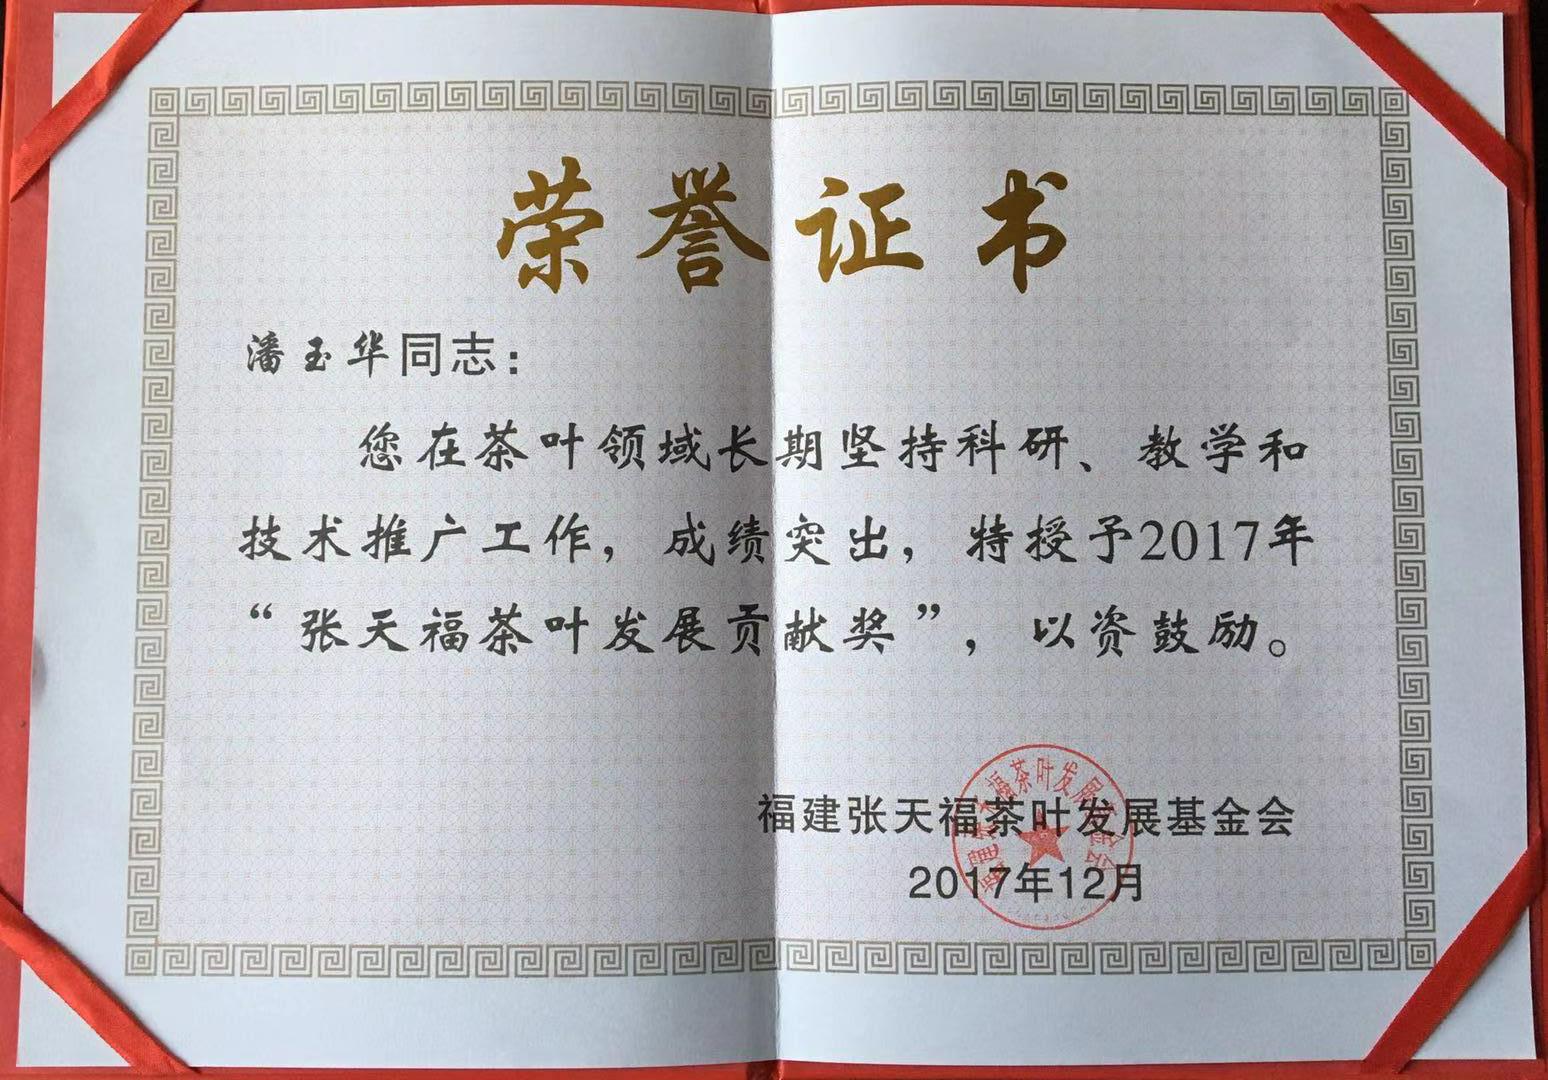 荣誉证书
潘玉华同志：
您在茶叶领域长期坚持科研、教学和
技术推广工作，成绩突出，特授予2017年
“张天福茶叶发展贡献奖”，以资鼓励。
福建张天福茶叶发展基金会
2017年12月